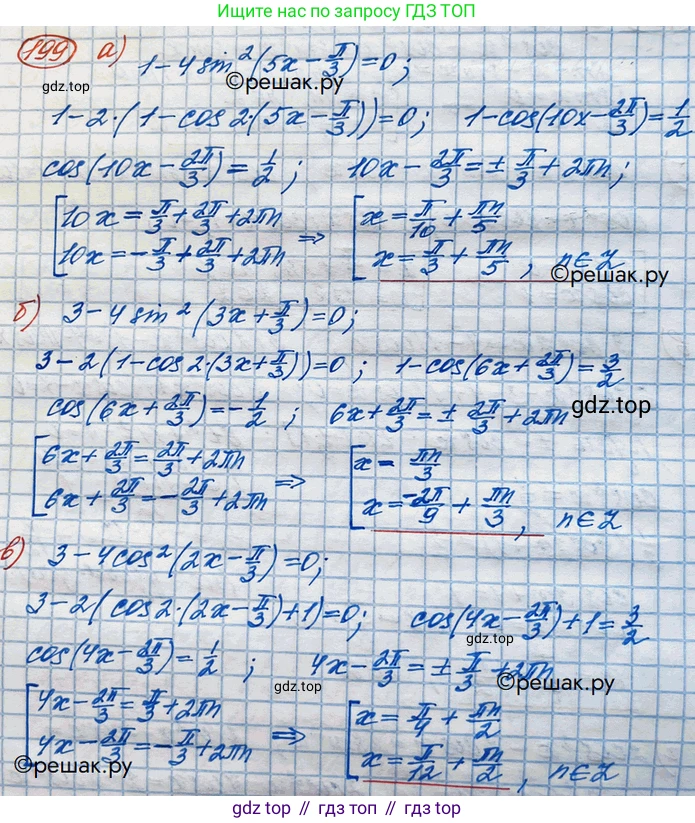 Ищите нас по запросу ГДЗ ТОП
199 а) 1-4sin²(5x-π/3)=0;
gdz.top ©решак.ру
1-2·(1-cos2·(5x-π/3))=0; 1-cos(10x-2π/3)=1/2
cos(10x-2π/3)=1/2; 10x-2π/3=±π/3+2πn;
[10x=π/3+2π/3+2πn ⇒ [x=π/10+πn/5
10x=-π/3+2π/3+2πn x=π/3+πn/5, n∈Z
©решак.ру
б) 3-4sin²(3x+π/3)=0;
3-2(1-cos2·(3x+π/3))=0; 1-cos(6x+2π/3)=3/2
cos(6x+2π/3)=-1/2; 6x+2π/3=±2π/3+2πn
gdz.top
[6x+2π/3=2π/3+2πn ⇒ [x=πn/3
6x+2π/3=-2π/3+2πn x=-2π/9+πn/3, n∈Z
в) 3-4cos²(2x-π/3)=0;
3-2(cos2·(2x-π/3)+1)=0; cos(4x-2π/3)+1=3/2
cos(4x-2π/3)=1/2; 4x-2π/3=±π/3+2πn
gdz.top ©решак.ру
[4x-2π/3=π/3+2πn ⇒ [x=π/4+πn/2
4x-2π/3=-π/3+2πn x=π/12+πn/2, n∈Z
©решак.ру
gdz top // гдз топ // gdz.top